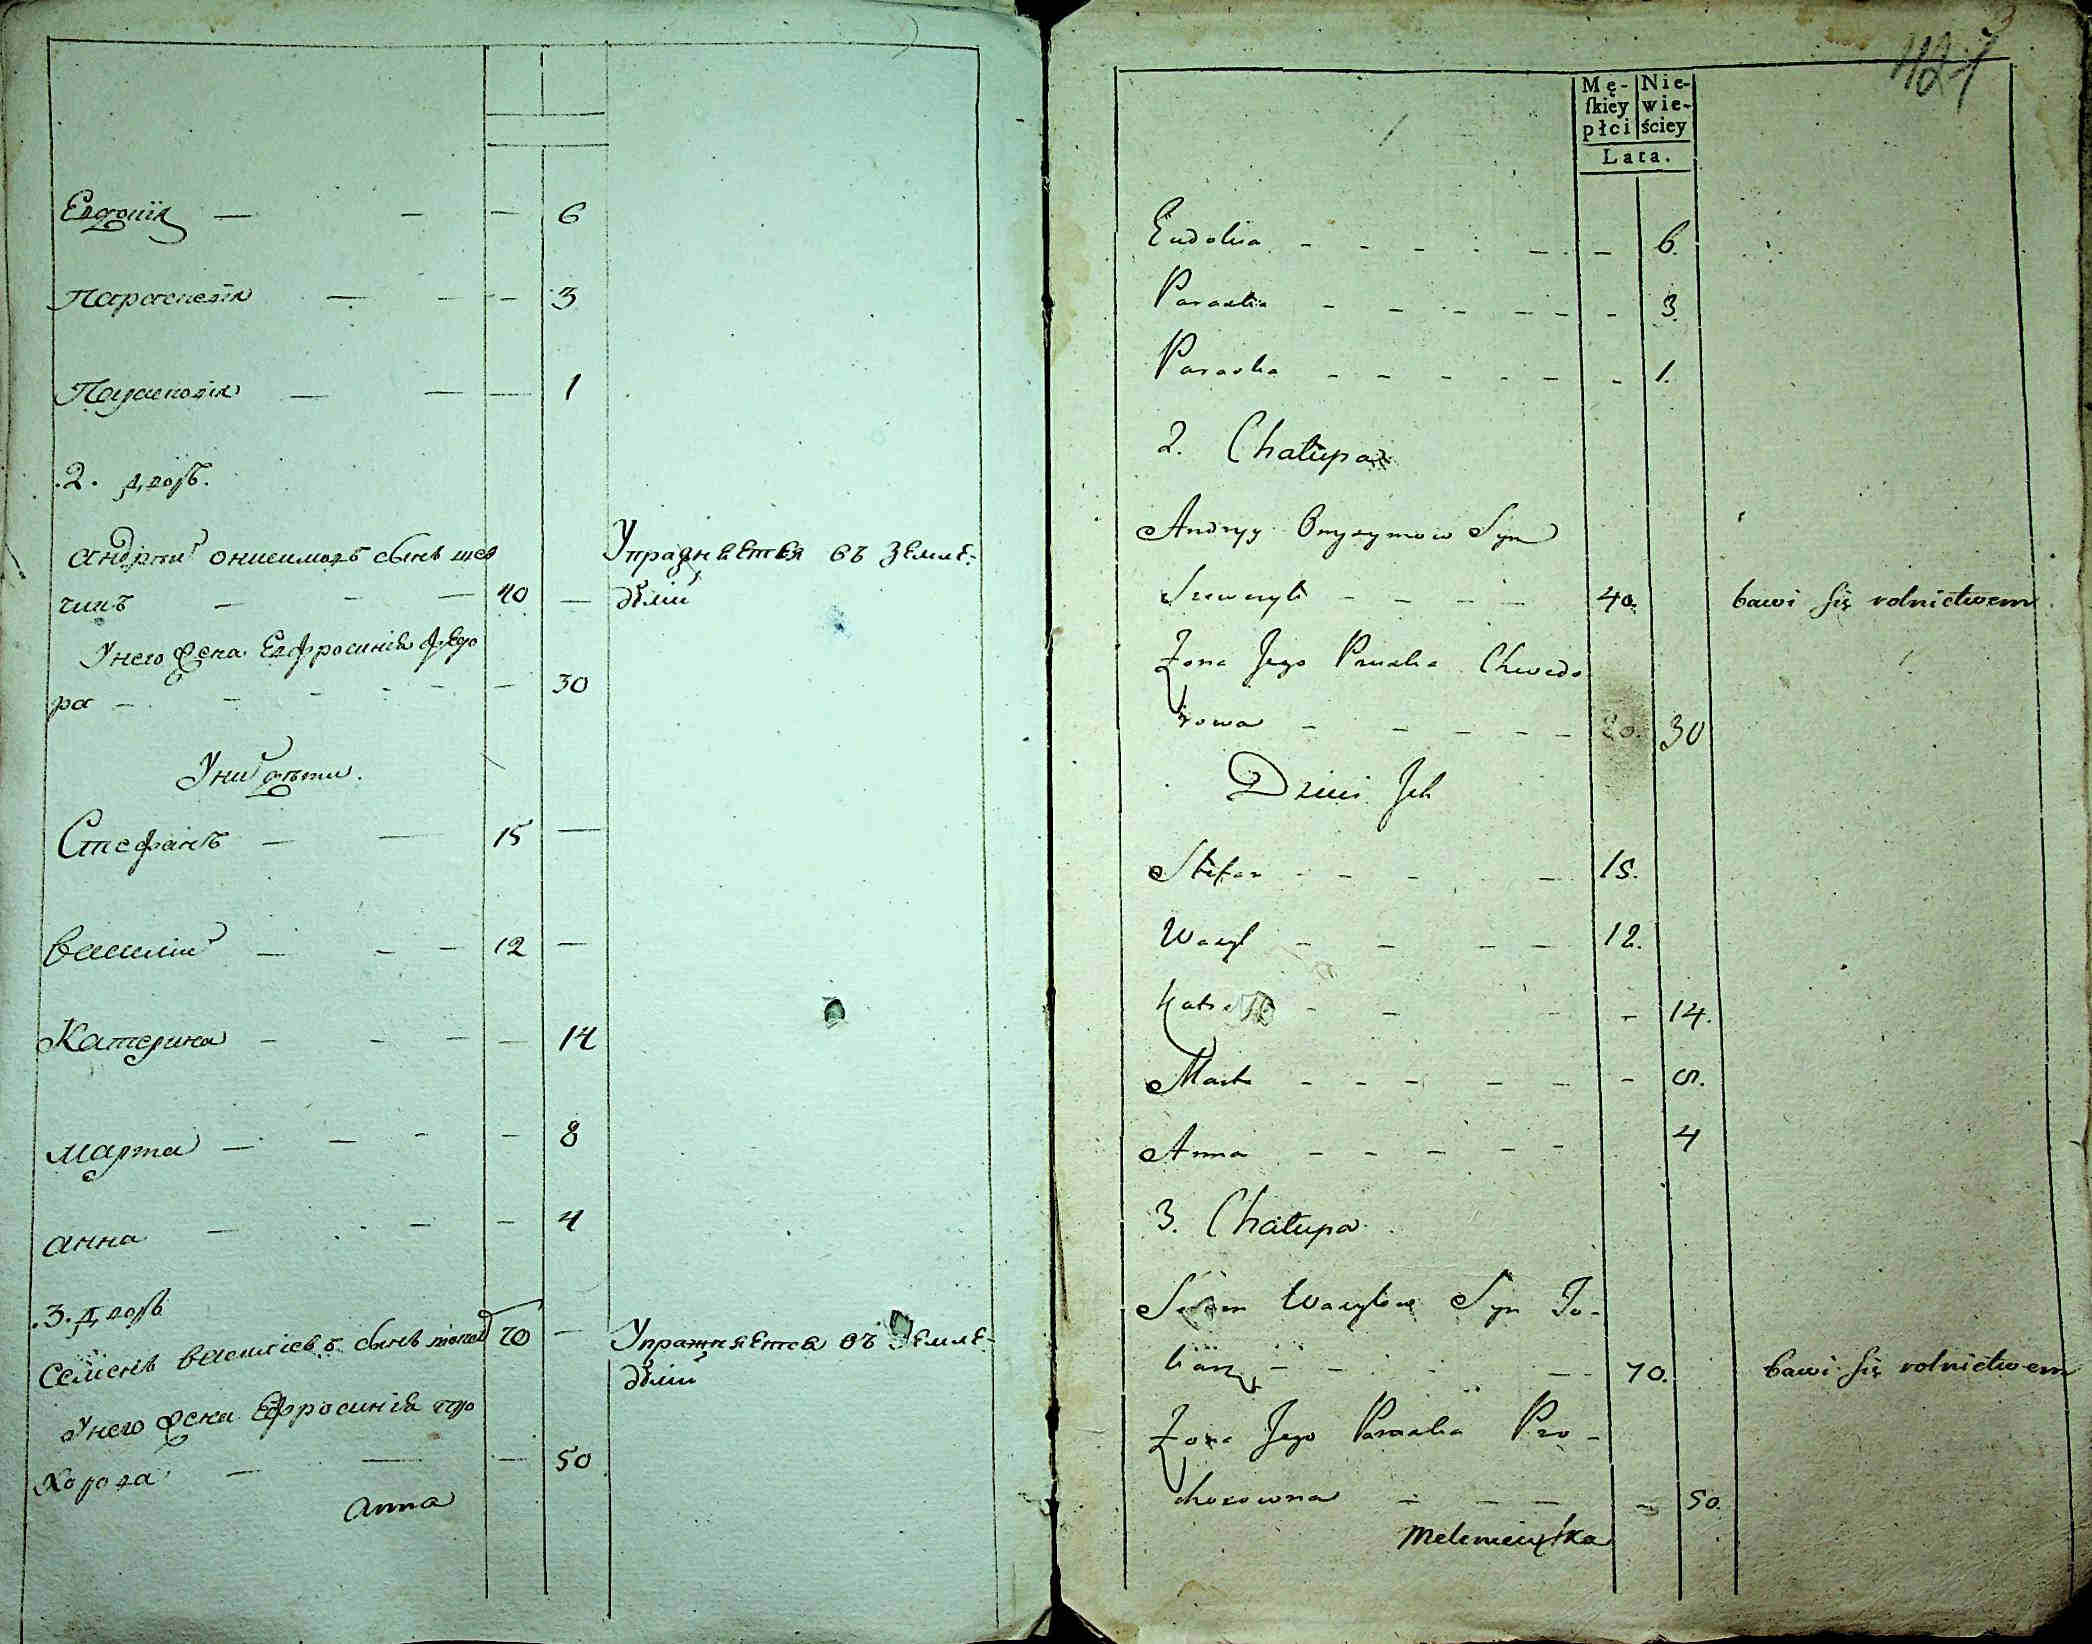 Евдокія — — — 6
Параскевія — — — 3
Параскевія — — — 1
.2. дворъ.
андрей онисимовъ сынъ шев
чикъ — — — 40 —
Упражняется въ земле-
дѣліи
У него жена Евфросинія федо
ра — — — — — — 30
У ни дѣти.
Стефанъ — — 15 —
василій — — — 12 —
Катерина — — — — 14
марта — — — — 8
анна — — — 4
.3. дворъ
семенъ василіевъ сынъ 70 —
Упражняется въ земле-
дѣліи
У него жена Ефросинія про
хорова — — — 50
анна
127
Mę-
skiey
płci
Nie-
wie-
ściey
Lata.
Eudokia - - - - - - 6.
Paraskia - - - - - - - 3.
Paraska - - - - - - 1.
2. Chałupa
Andryy Onyzymow Syn
- - - - 40. bawi się rolnictwem
Żona Jego Chwedo
rowa - - - - - 30
Dzieci Jch
Stefan - - - - - 15.
Wasyl - - - - 12.
- - - - 14.
Marta - - - - - - 8.
Anna - - - - - 4
3. Chałupa
Semen Wasylow Syn
- - - - 70. bawi się rolnictwem
Żona Jego Paraska Pro-
chorowna - - - - 50.